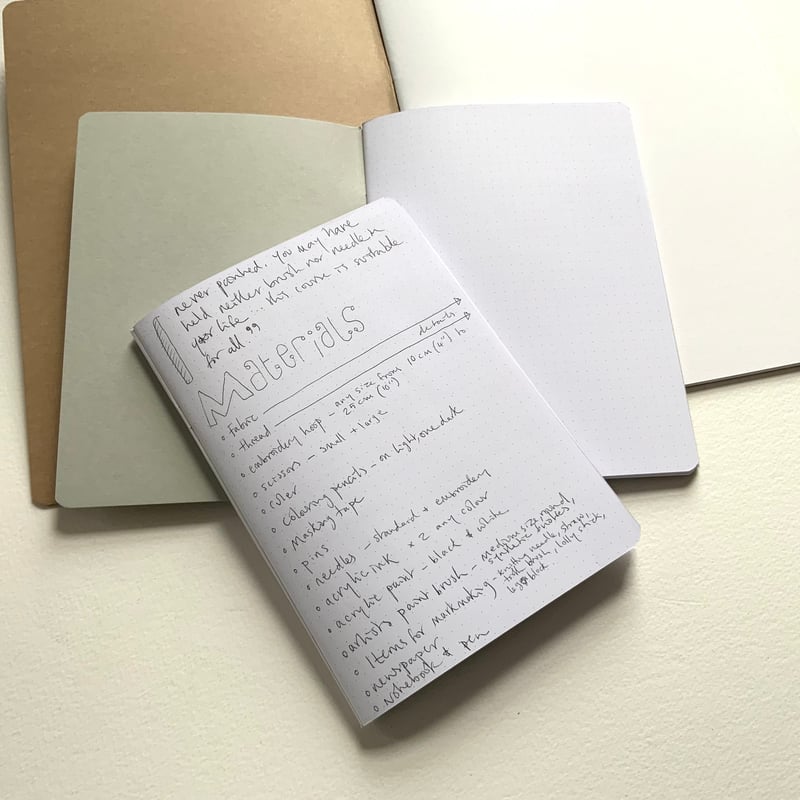 never painted. You may have
held neither brush nor needle in
your life ... this course is suitable
for all"
Materials
fabric
thread
details
embroidery hoop - any size from 10cm (4") to
25cm (10")
scissors - small + large
ruler
coloring pencils - on light, one dark
Masking tape
pins
needles - standard + embroidery
acrylic ink x 2 any colour
acrylic paint - black + white
artists paint brush - medium size, round,
synthetic bristles
Items for markmaking - knitting needle, straw,
tooth brush, lolly stick,
lego block
newspaper
Notebook + pen